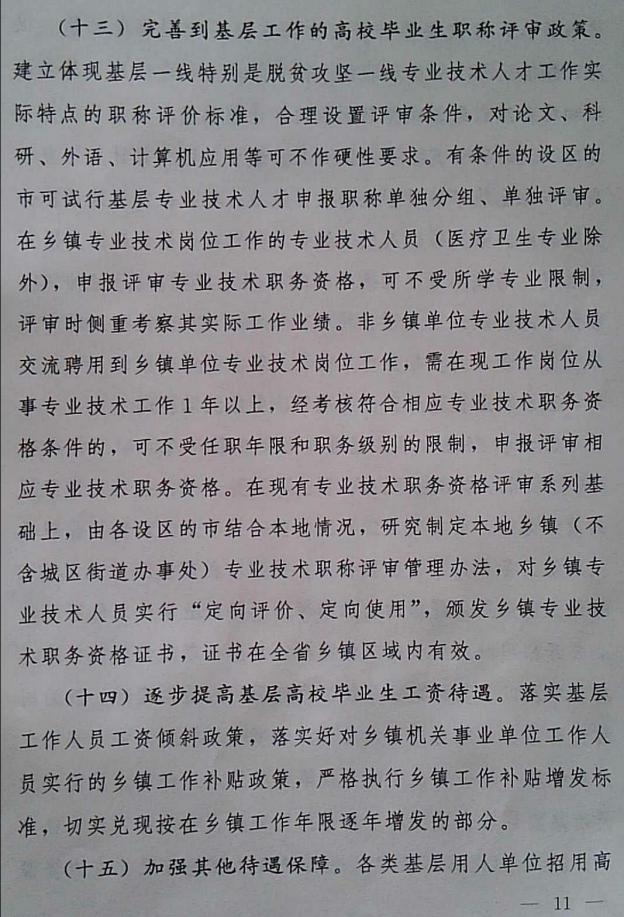 （十三）完善到基层工作的高校毕业生职称评审政策。
建立体现基层一线特别是脱贫攻坚一线专业技术人才工作实
际特点的职称评价标准，合理设置评审条件，对论文、科
研、外语、计算机应用等可不作硬性要求。有条件的设区的
市可试行基层专业技术人才申报职称单独分组、单独评审。
在乡镇专业技术岗位工作的专业技术人员（医疗卫生专业除
外），申报评审专业技术职务资格，可不受所学专业限制，
评审时侧重考察其实际工作业绩。非乡镇单位专业技术人员
交流聘用到乡镇单位专业技术岗位工作，需在现工作岗位从
事专业技术工作1年以上，经考核符合相应专业技术职务资
格条件的，可不受任职年限和职务级别的限制，申报评审相
应专业技术职务资格。在现有专业技术职务资格评审系列基
础上，由各设区的市结合本地情况，研究制定本地乡镇（不
含城区街道办事处）专业技术职称评审管理办法，对乡镇专
业技术人员实行“定向评价、定向使用”，颁发乡镇专业技
术职务资格证书，证书在全省乡镇区域内有效。
（十四）逐步提高基层高校毕业生工资待遇。落实基层
工作人员工资倾斜政策，落实好对乡镇机关事业单位工作人
员实行的乡镇工作补贴政策，严格执行乡镇工作补贴增发标
准，切实兑现按在乡镇工作年限逐年增发的部分。
（十五）加强其他待遇保障。各类基层用人单位招用高
— 11 —